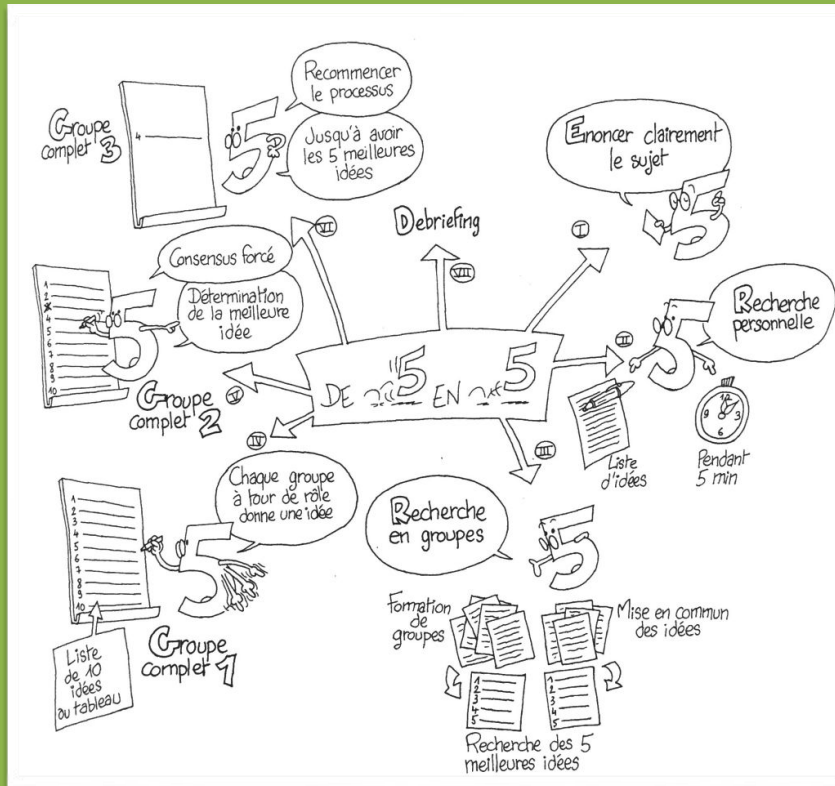 DE 5 EN 5
I
Enoncer clairement
le sujet
II
Recherche
personnelle
Liste
d'idées
12
3
6
9
Pendant
5 min
III
Recherche
en groupes
Formation
de
groupes
Mise en commun
des idées
1
2
3
4
5
1
2
3
4
5
Recherche des 5
meilleures idées
IV
Chaque groupe
à tour de rôle
donne une idée
1
2
3
4
5
6
7
8
9
10
Liste
de 10
idées
au tableau
Groupe
complet 1
V
Consensus forcé
Détermination
de la meilleure
idée
1
2
4
5
6
7
8
9
10
Groupe
complet 2
VI
Recommencer
le processus
Jusqu'à avoir
les 5 meilleures
idées
Groupe
complet 3
4
VII
Debriefing